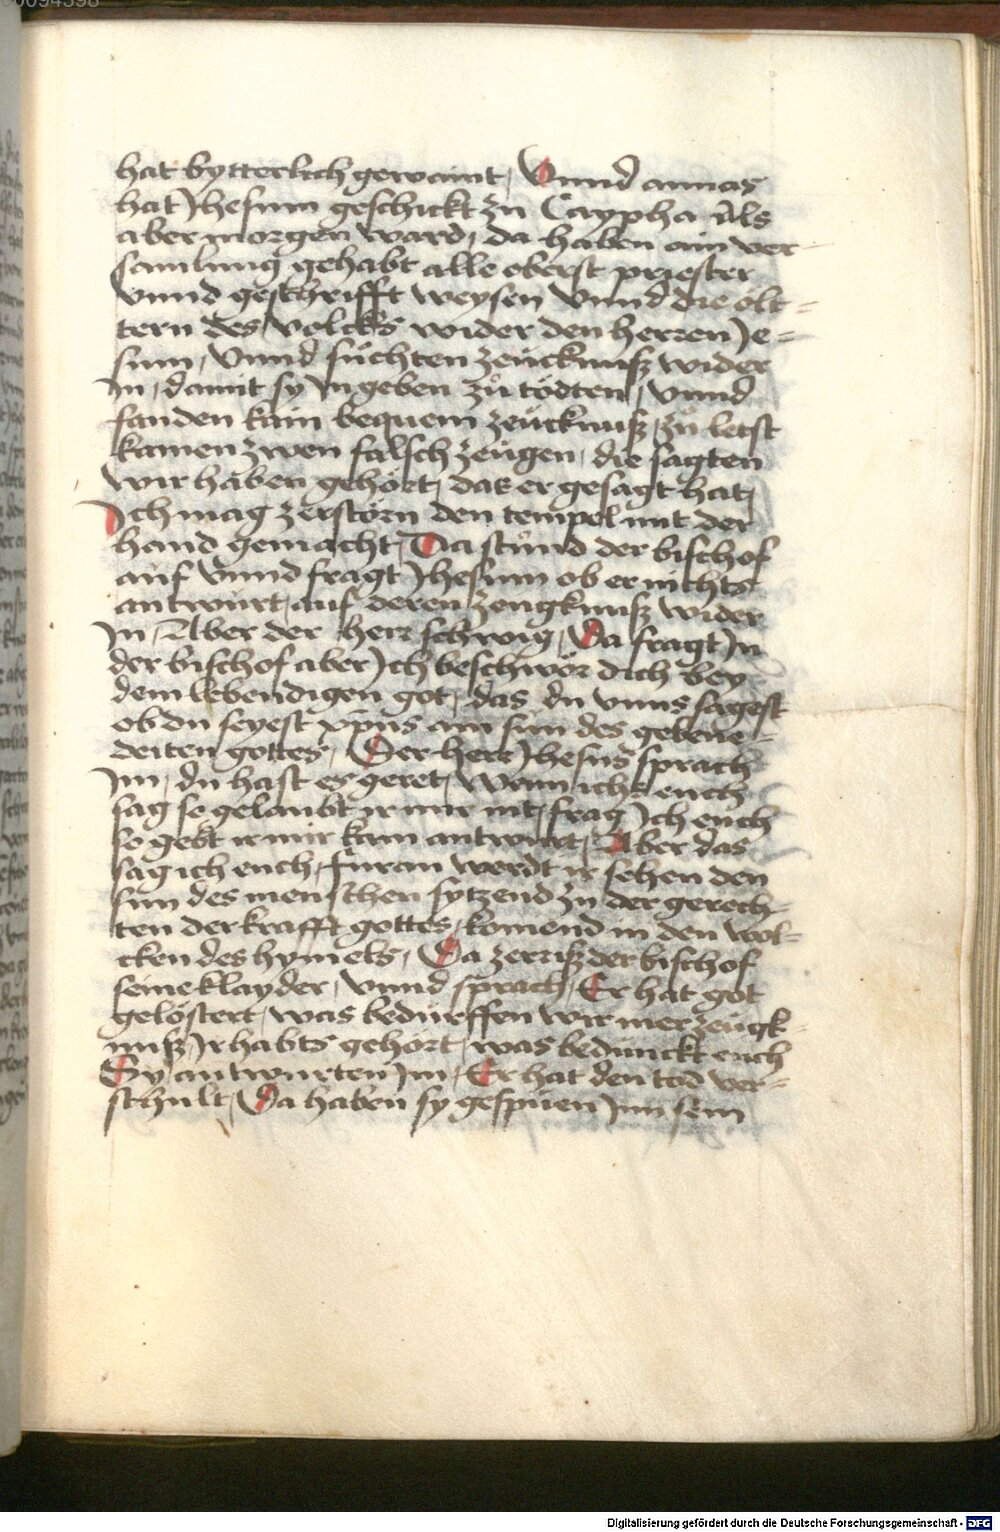 hat bytterlich gewaint, Vnnd annas
hat Jhesum geschickt zu Caypha Als
aber morgen ward, da haben ain ver-
samlung gehabt alle oberst priester
vnnd geschrifft weysen vnnd die ölt-
tern des volcks wider den herren Je-
sum, Vnnd sůchten zeücknuß wider
In, damit sy In geben zů tödten, vnnd
fanden kain bequem zeücknuß, zů letst
kamen zwen falsch zeügen, die sagten
wir haben gehört, das er gesagt hat,
Ich mag zerstörn den tempel mit der
hand gemacht, Da stůnd der bischof
auf vnnd fragt Jhesum ob er nichts
antwürt, auf deren zeugknuß wider
In, Aber der herr schwig, Da fragt In
der bischof aber Ich beschwör dich bey
dem lebendigen got, das du vnns sagest
ob du seyest xp̄us ain sun des gebene-
deiten gottes, Der herr Jhesus sprach
Im, du hast es geret, Wann ichs euch
sag so gelaubt ir mir nit, frag Ich euch
so gebt ir mir kain antwurt, Aber das
sag ich euch, füran werdt ir sehen den
sun des menschen sytzend zu der gerech-
ten der krafft gottes, komend in den wol-
cken des hymels, Da zerriß der bischof
seine klayder, vnnd sprach, Er hat got
gelöstert, was bedürffen wir mer zeügk-
nuß, Ir habts gehört, was bedunckt euch
Sy antwurten Im, Er hat den tod ver-
schult, Da haben sy gespüen Inn sein
Digitalisierung gefördert durch die Deutsche Forschungsgemeinschaft - DFG